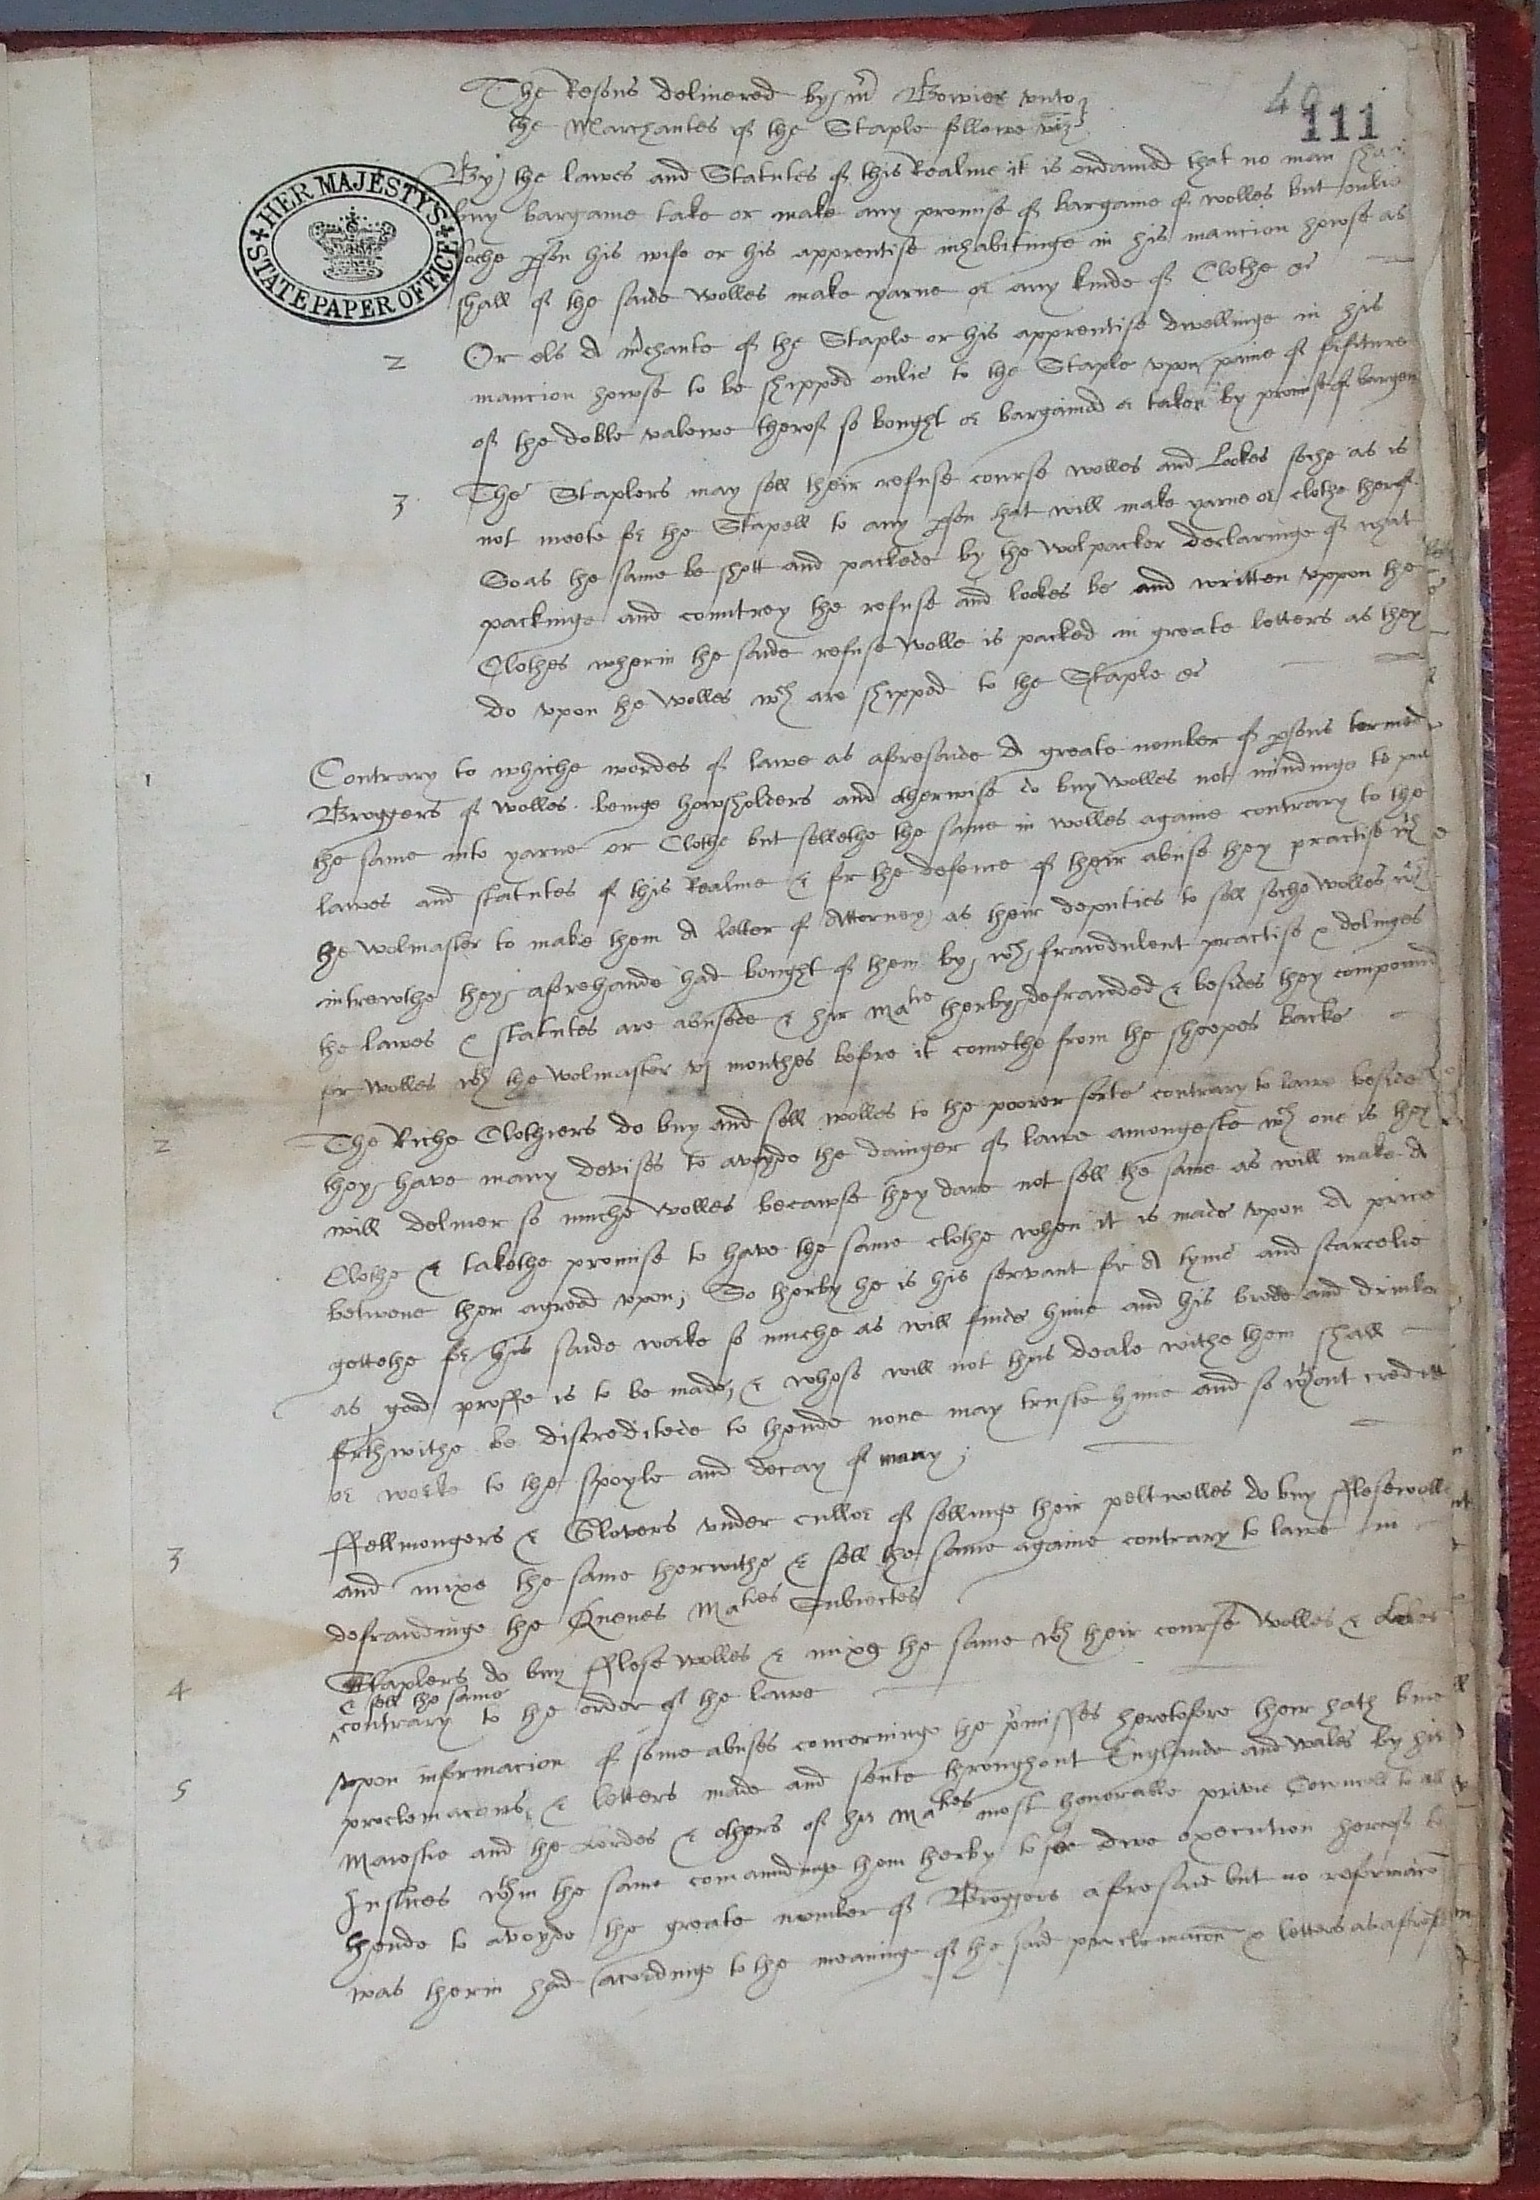 The Resons delivered by mr Bowier vnto
the Marchantes of the Staple followe viz
40
111
HER MAJESTYS STATE PAPER OFFICE
By the lawes and Statutes of this Realme it is ordained that no man shall
buy bargaine take or make any promise of bargaine of wolles but onlie
soche pson his wife or his apprentise inhabitinge in his mancion howse as
shall of the saide wolles make yarne or any kinde of Clothe &c
2 Or els A mchante of the Staple or his apprentise dwellinge in his
mancion howse to be shipped onlie to the Staple vpon paine of forfiture
of the doble valewe therof so bought or bargained or taken by promise of bargen
3 The Staplers may sell their refuse course wolles and Lockes soche as is
not meete for the Stapell to any pson that will make yarne or clothe therof
So as the same be shott and packede by the wolpacker declaringe of what
packinge and countrey the refuse and lockes be and written vppon the
Clothes wherin the saide refuse wolle is packed in greate letters as they
do vpon the wolles wch are shipped to the Staple &c
1 Contrary to whiche wordes of lawe as aforesaide A greate nomber of psons termed
Broggers of wolles beinge howsholders and otherwise do buy wolles not mindinge to put
the same into yarne or Clothe but sellethe the same in wolles againe contrary to the
lawes and statutes of this Realme & for the defence of their abuse they practise wth
the wolmaster to make them A letter of Attorney as their deputies to sell soche wolles wch
in trewthe they aforehande had bought of them by wch frawdulent practise & delinges
the lawes & statutes are abusede & hir Matie therby defrauded & besides they compound
for wolles wth the wolmaster vj monthes before it comethe from the sheepes backe
2 The Riche Clothiers do buy and sell wolles to the poorer sorte contrary to lawe besides
they have many devises to avoyde the dainger of lawe amongeste wch one is they
will deliver so muche wolles becawse they dare not sell the same as will make A
Clothe & takethe promise to have the same clothe when it is made vpon A price
betwene them agreed vpon, So therby he is his servant for A tyme and scarcelie
gettethe for his saide worke so muche as will finde hime and his bredd and drinke
as good proffe is to be made, & whose will not thus deale withe them shall
forthwithe be discreditede to thende none may truste hime and so wthout creditt
or worke to the spoyle and decay of many;
3 ffellmongers & Glovers vnder culler of sellinge their pelt wolles do buy fflese wolles
and mixe the same therwithe & sell the same againe contrary to lawe in
defraudinge the Quenes Maties Subiectes
4 Staplers do buy fflese wolles & mixe the same wth their course wolles & Lockes
& sell the same
contrary to the order of the lawe
5 vpon informacion of some abuses concerninge the pmisses heretofore their hath bine
proclemacons & letters made and sente throughout Englande and Wales by hir
Maiestie and the Lordes & others of hir Maties most honorable privie Cowncell to all
Justices wthin the same comaundinge them therby to see dwe execution therof to
thende to avoyde the greate nomber of Broggers aforesaid but no reformacon
was therin had accordinge to the meaninge of the said proclemacon & letters as aforesd